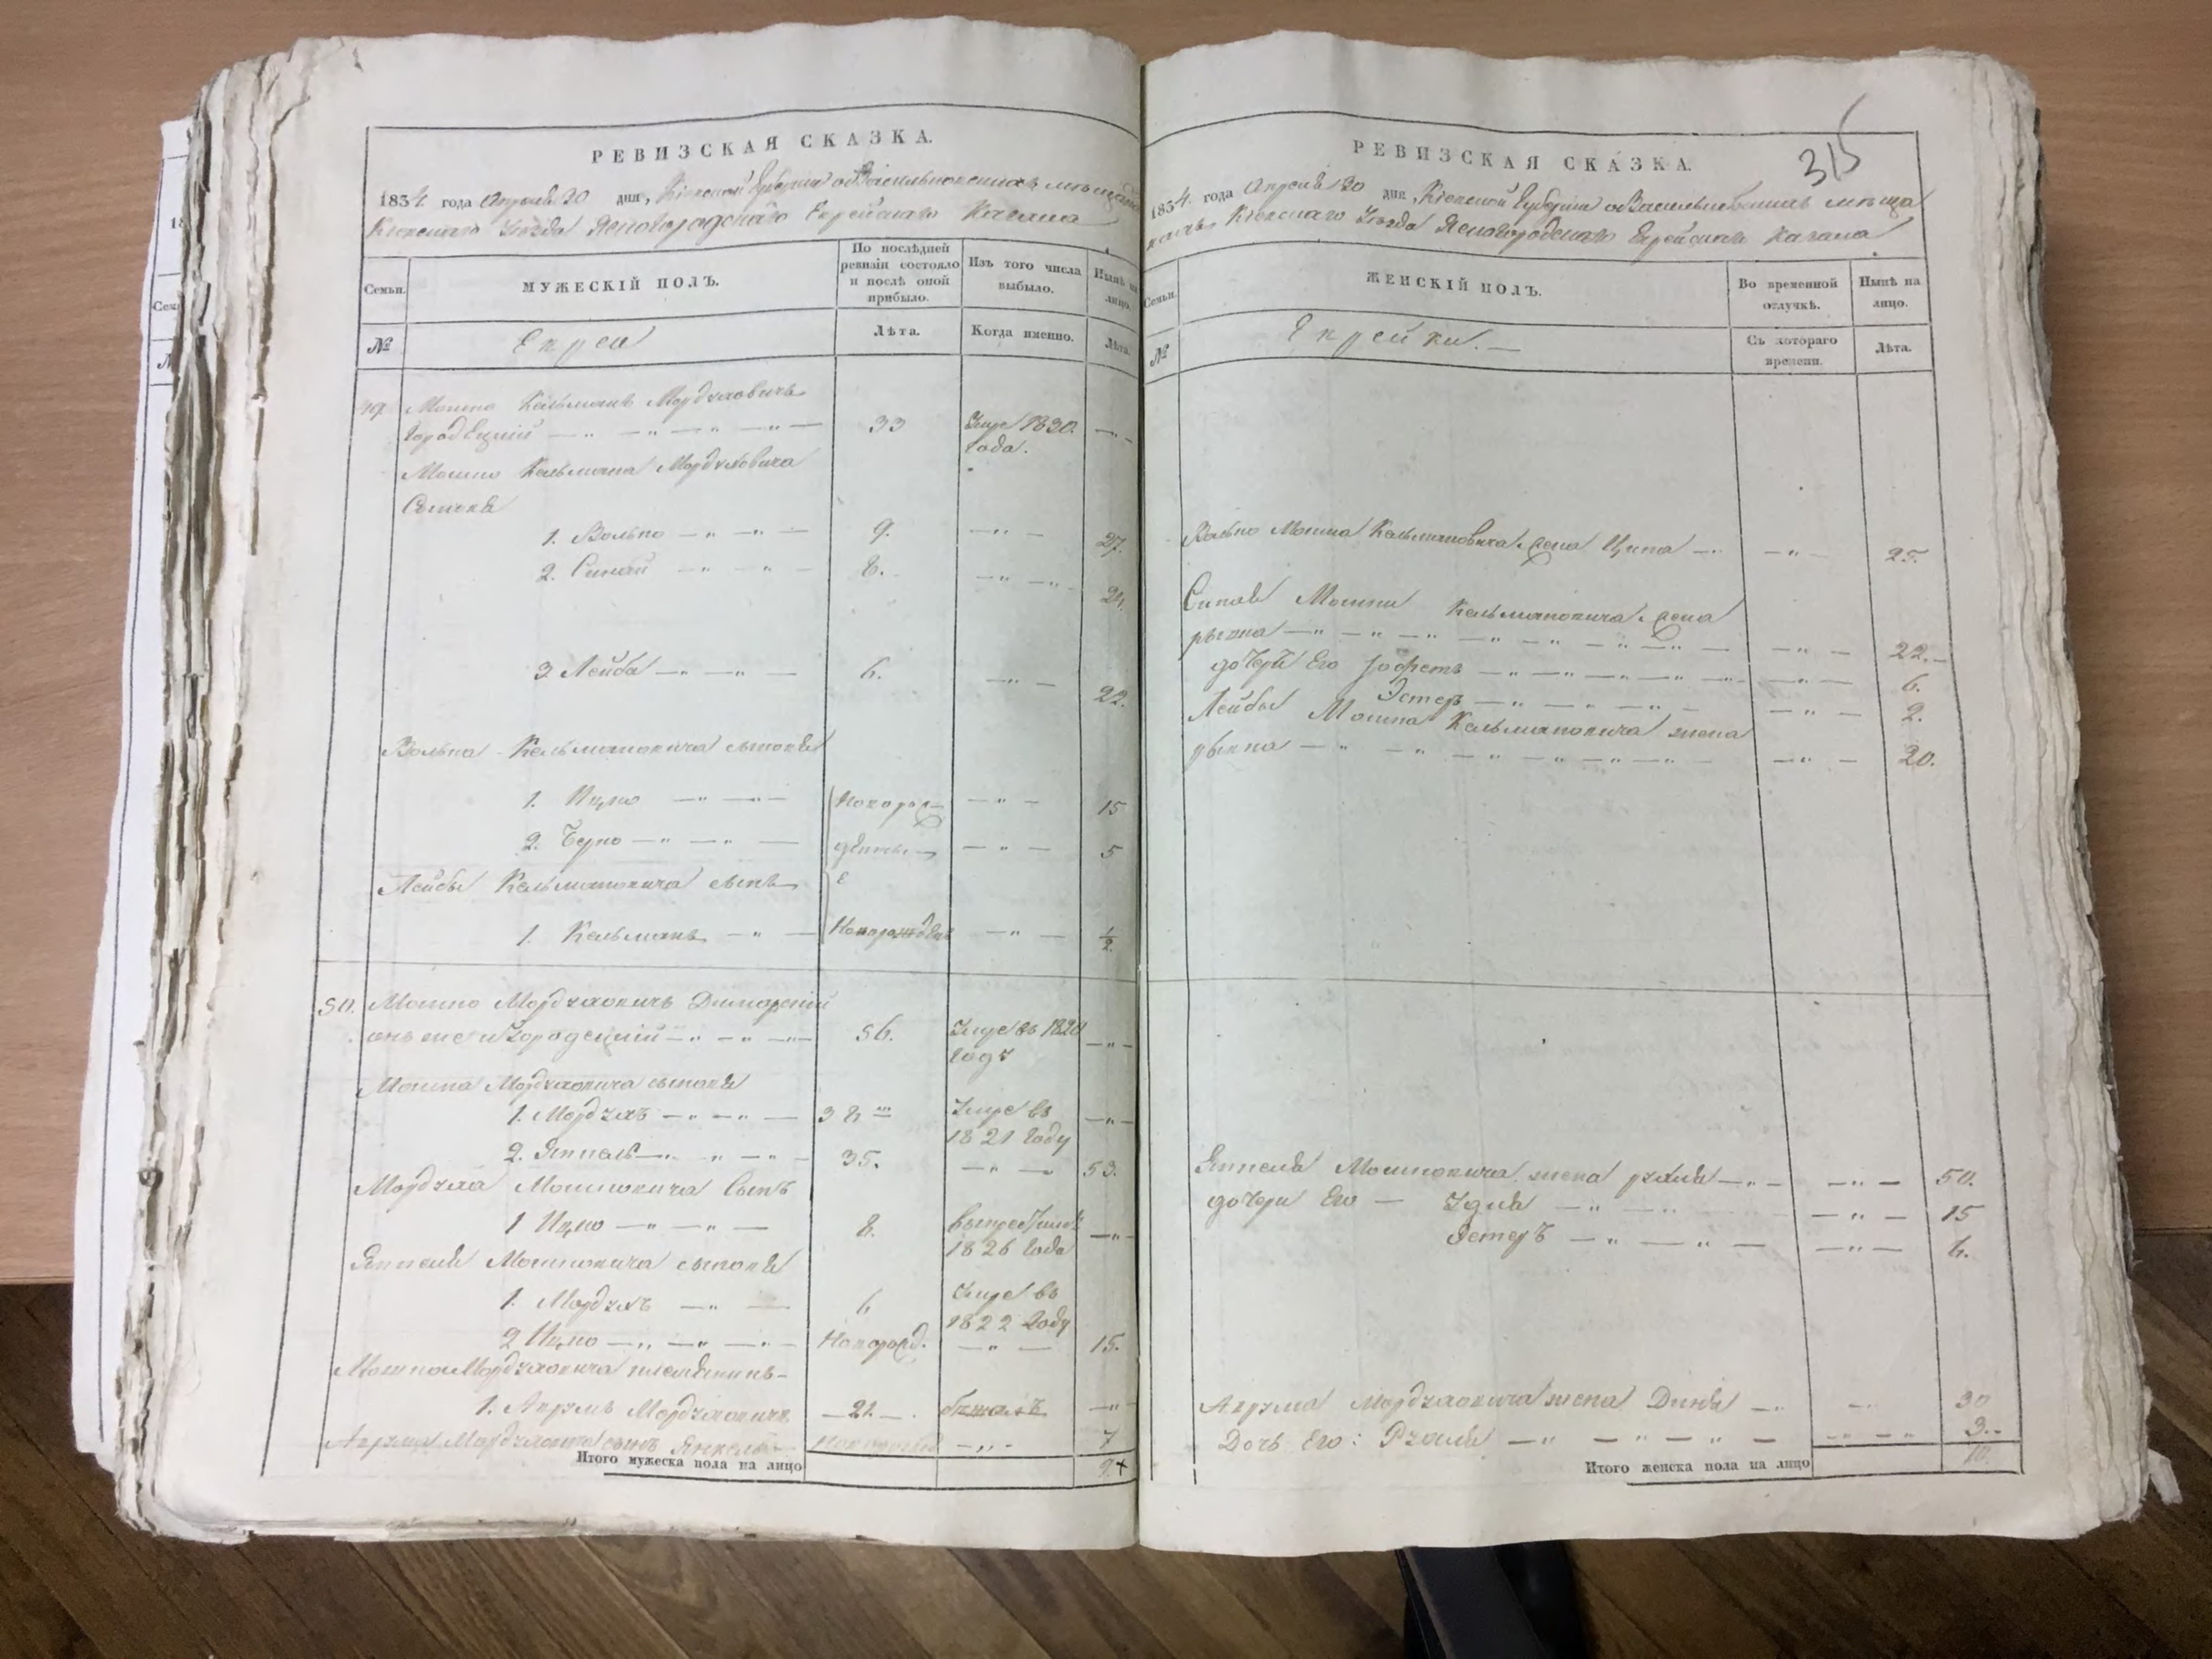 РЕВИЗСКАЯ СКАЗКА.
1834. года Апреля 30 дня, Кіевской Губерніи о Васильковскихъ мѣщана
Кіевскаго Уѣзда Ясногородскаго Еврейскаго Кагала
Семьи.
МУЖЕСКІЙ ПОЛЪ.
По послѣдней ревизіи состояло и послѣ оной прибыло.
Изъ того числа выбыло.
Нынѣ на лицо.
№
Евреи
Лѣта.
Когда именно.
Лѣта.
49. Мошко Кельманъ Мордуховичь
Городецкій — 33 Умре 1830. года.
Мошко Кельмана Мордуховича
Сыновя
1. Волько — 9. — 27.
2. Синай — 8. — 24.
3 Лейба — 6. — 22.
Волька Кельмановича сыновя
1. Ицко — Новорож — 15
2. Берко — дѣнны — 5
Лейбы Кельмановича сынъ е
1. Кельманъ — Новорожден — 1/2
50. Мошко Мордуховичь Дымарскій
онъ же и Городецкій — 56. Умре въ 1820 году
Мошка Мордуховича сыновя
1. Мордухъ — 38 Умре въ 1821 году
2. Янкель — 35. — 53.
Мордуха Мошковича Сынъ
1 Ицко — 8. 1826 года
Янкеля Мошковича сыновя
1. Мордухъ — 6 Умре въ 1822 году
2 Ицко — Новорожд. — 15.
Мошка Мордуховича племянникъ
1. Аврумъ Мордуховичь — 21. — бѣжалъ —
Аврума Мордуховича сынъ Янкель — — 7
Итого мужеска пола на лицо 9. +
315
РЕВИЗСКАЯ СКАЗКА.
1834. года Апреля 30 дня, Кіевской Губерніи о Васильковскихъ мѣща
нахъ Кіевскаго Уѣзда Ясногородскаго Еврейскаго Кагала
Семьи.
ЖЕНСКІЙ ПОЛЪ.
Во временной отлучкѣ.
Нынѣ на лицо.
№
Еврейки. —
Съ котораго времени.
Лѣта.
Волько Мошка Кельмановича жена Ципа — 25.
Синая Мошки Кельмановича жена
рывка — 22.
дочери Его — 6.
Эстеръ — 2.
Лейбы Мошка Кельмановича жена
рывка — 20.
Янкеля Мошковича жена рухля — 50.
дочери Его — Удля — 15
Эстеръ — 6.
Аврума Мордуховича жена Диня — 30
Дочь Его: Рухля — 3.
Итого женска пола на лицо 10.